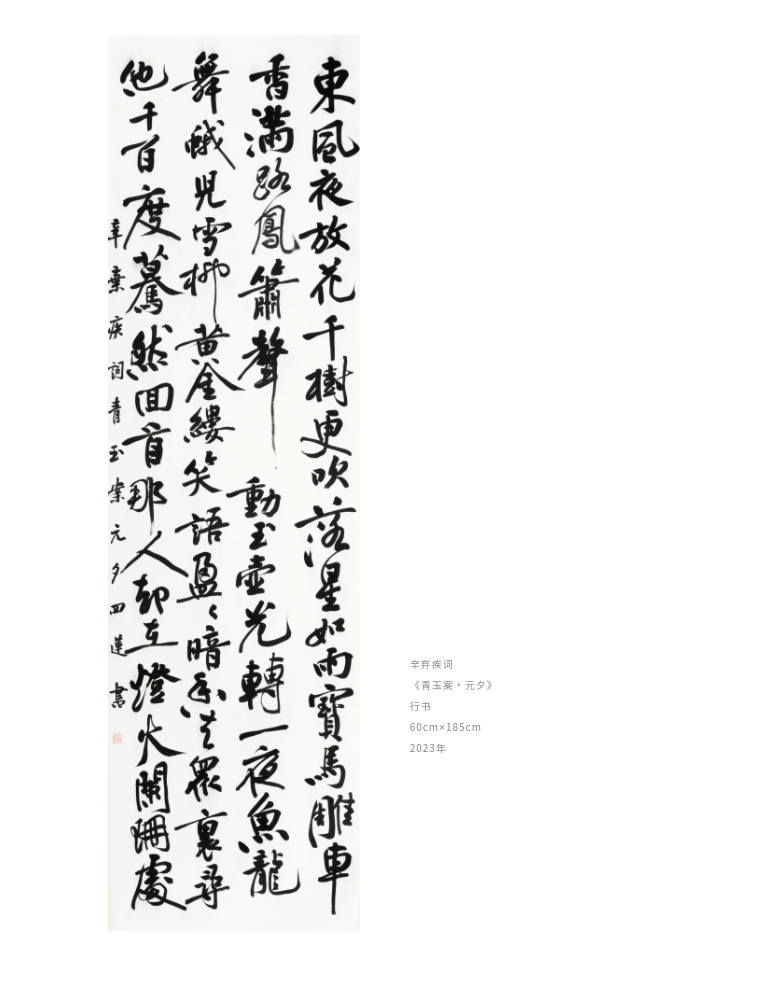 東風夜放花千樹更吹落星如雨寶馬雕車
香滿路鳳簫聲動玉壺光轉一夜魚龍
舞蛾兒雪柳黄金縷笑語盈〻暗香去眾裏尋
他千百度驀然回首那人却在燈火闌珊處
辛棄疾詞青玉案元夕書
辛弃疾词
《青玉案·元夕》
行书
60cm×185cm
2023年